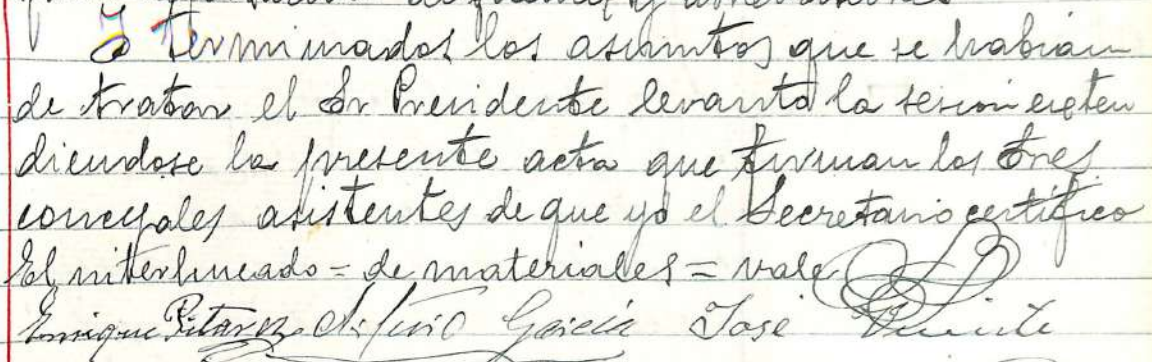 Y terminados los asuntos que se habian
de tratar el Sr Presidente levanta la sesion exten
diendose la presente acta que firman los Sres
concejales asistentes de que yo el Secretario certifico
El interlineado = de materiales = vale
Enrique Pitarch Garcia Jose Vicente